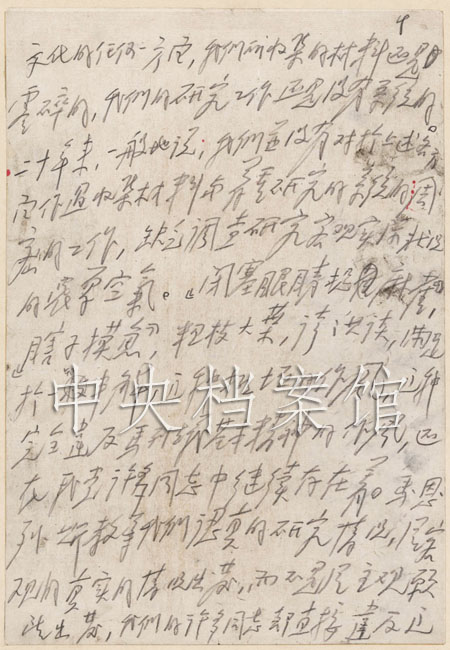 4
文化的任何一方面，我们所收集的材料还是
零碎的，我们的研究工作还是没有系统的。
二十年来，一般地说，我们并没有对于上述各方
面作过收集材料与着重研究的系统的周
密的工作，缺乏调查研究客观实际状况
的浓厚空气。“闭塞眼睛捉麻雀”，
“瞎子摸鱼”，粗枝大叶，夸夸其谈，满足
于一知半解，这种极坏的作风，这种
完全违反马列主义基本精神的作风，还
在我党许多同志中继续存在着。马恩
列斯教导我们认真的研究情况，从客
观的真实的情况出发，而不是从主观愿
望出发，我们的许多同志却直接违反这
中央档案馆